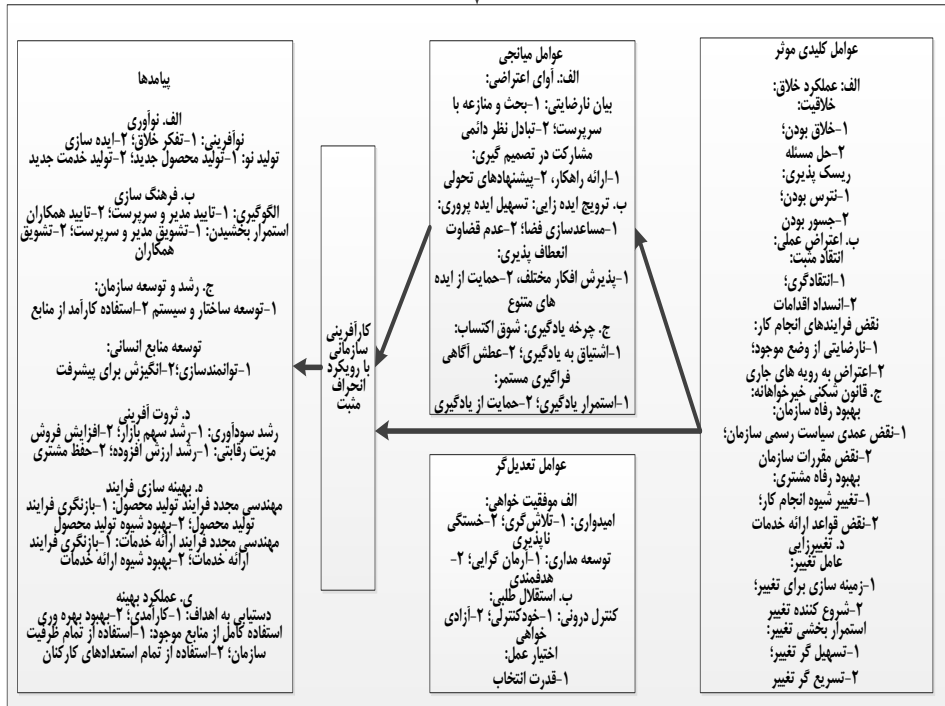 عوامل کلیدی موثر
الف: عملکرد خلاق:
خلاقیت:
۱-خلاق بودن؛
۲-حل مسئله
ریسک پذیری:
۱-نترس بودن؛
۲-جسور بودن
ب. اعتراض عملی:
انتقاد مثبت:
۱-انتقادگری؛
۲-انسداد اقدامات
نقض فرایندهای انجام کار:
۱-نارضایتی از وضع موجود؛
۲-اعتراض به رویه های جاری
ج. قانون شکنی خیرخواهانه:
بهبود رفاه سازمان:
۱-نقض عمدی سیاست رسمی سازمان؛
۲-نقض مقررات سازمان
بهبود رفاه مشتری:
۱-تغییر شیوه انجام کار؛
۲-نقض قواعد ارائه خدمات
د. تغییرزایی
عامل تغییر:
۱-زمینه سازی برای تغییر؛
۲-شروع کننده تغییر
استمرار بخشی تغییر:
۱-تسهیل گر تغییر؛
۲-تسریع گر تغییر
عوامل میانجی
الف: آوای اعتراضی:
بیان نارضایتی: ۱-بحث و منازعه با
سرپرست؛ ۲-تبادل نظر دائمی
مشارکت در تصمیم گیری:
۱-ارائه راهکار، ۲-پیشنهادهای تحولی
ب. ترویج ایده زایی: تسهیل ایده پروری:
۱-مساعدسازی فضا؛ ۲-عدم قضاوت
انعطاف پذیری:
۱-پذیرش افکار مختلف، ۲-حمایت از ایده
های متنوع
ج. چرخه یادگیری: شوق اکتساب:
۱-اشتیاق به یادگیری؛ ۲-عطش آگاهی
فراگیری مستمر:
۱-استمرار یادگیری؛ ۲-حمایت از یادگیری
عوامل تعدیل‌گر
الف موفقیت خواهی:
امیدواری: ۱-تلاش‌گری؛ ۲-خستگی
ناپذیری
توسعه مداری: ۱-آرمان گرایی؛ ۲-
هدفمندی
ب. استقلال طلبی:
کنترل درونی: ۱-خودکنترلی؛ ۲-آزادی
خواهی
اختیار عمل:
۱-قدرت انتخاب
کارآفرینی
سازمانی
با رویکرد
انحراف
مثبت
پیامدها
الف. نوآوری
نوآفرینی: ۱-تفکر خلاق؛ ۲-ایده سازی
تولید نو: ۱-تولید محصول جدید؛ ۲-تولید خدمت جدید
ب. فرهنگ سازی
الگوگیری: ۱-تایید مدیر و سرپرست؛ ۲-تایید همکاران
استمرار بخشیدن: ۱-تشویق مدیر و سرپرست؛ ۲-تشویق
همکاران
ج. رشد و توسعه سازمان:
۱-توسعه ساختار و سیستم ۲-استفاده کارآمد از منابع
توسعه منابع انسانی:
۱-توانمندسازی؛۲-انگیزش برای پیشرفت
د. ثروت آفرینی
رشد سودآوری: ۱-رشد سهم بازار؛ ۲-افزایش فروش
مزیت رقابتی: ۱-رشد ارزش افزوده؛ ۲-حفظ مشتری
ه. بهینه سازی فرایند
مهندسی مجدد فرایند تولید محصول: ۱-بازنگری فرایند
تولید محصول؛ ۲-بهبود شیوه تولید محصول
مهندسی مجدد فرایند ارائه خدمات: ۱-بازنگری فرایند
ارائه خدمات؛ ۲-بهبود شیوه ارائه خدمات
ی. عملکرد بهینه
دستیابی به اهداف: ۱-کارآمدی؛ ۲-بهبود بهره وری
استفاده کامل از منابع موجود: ۱-استفاده از تمام ظرفیت
سازمان؛ ۲-استفاده از تمام استعدادهای کارکنان